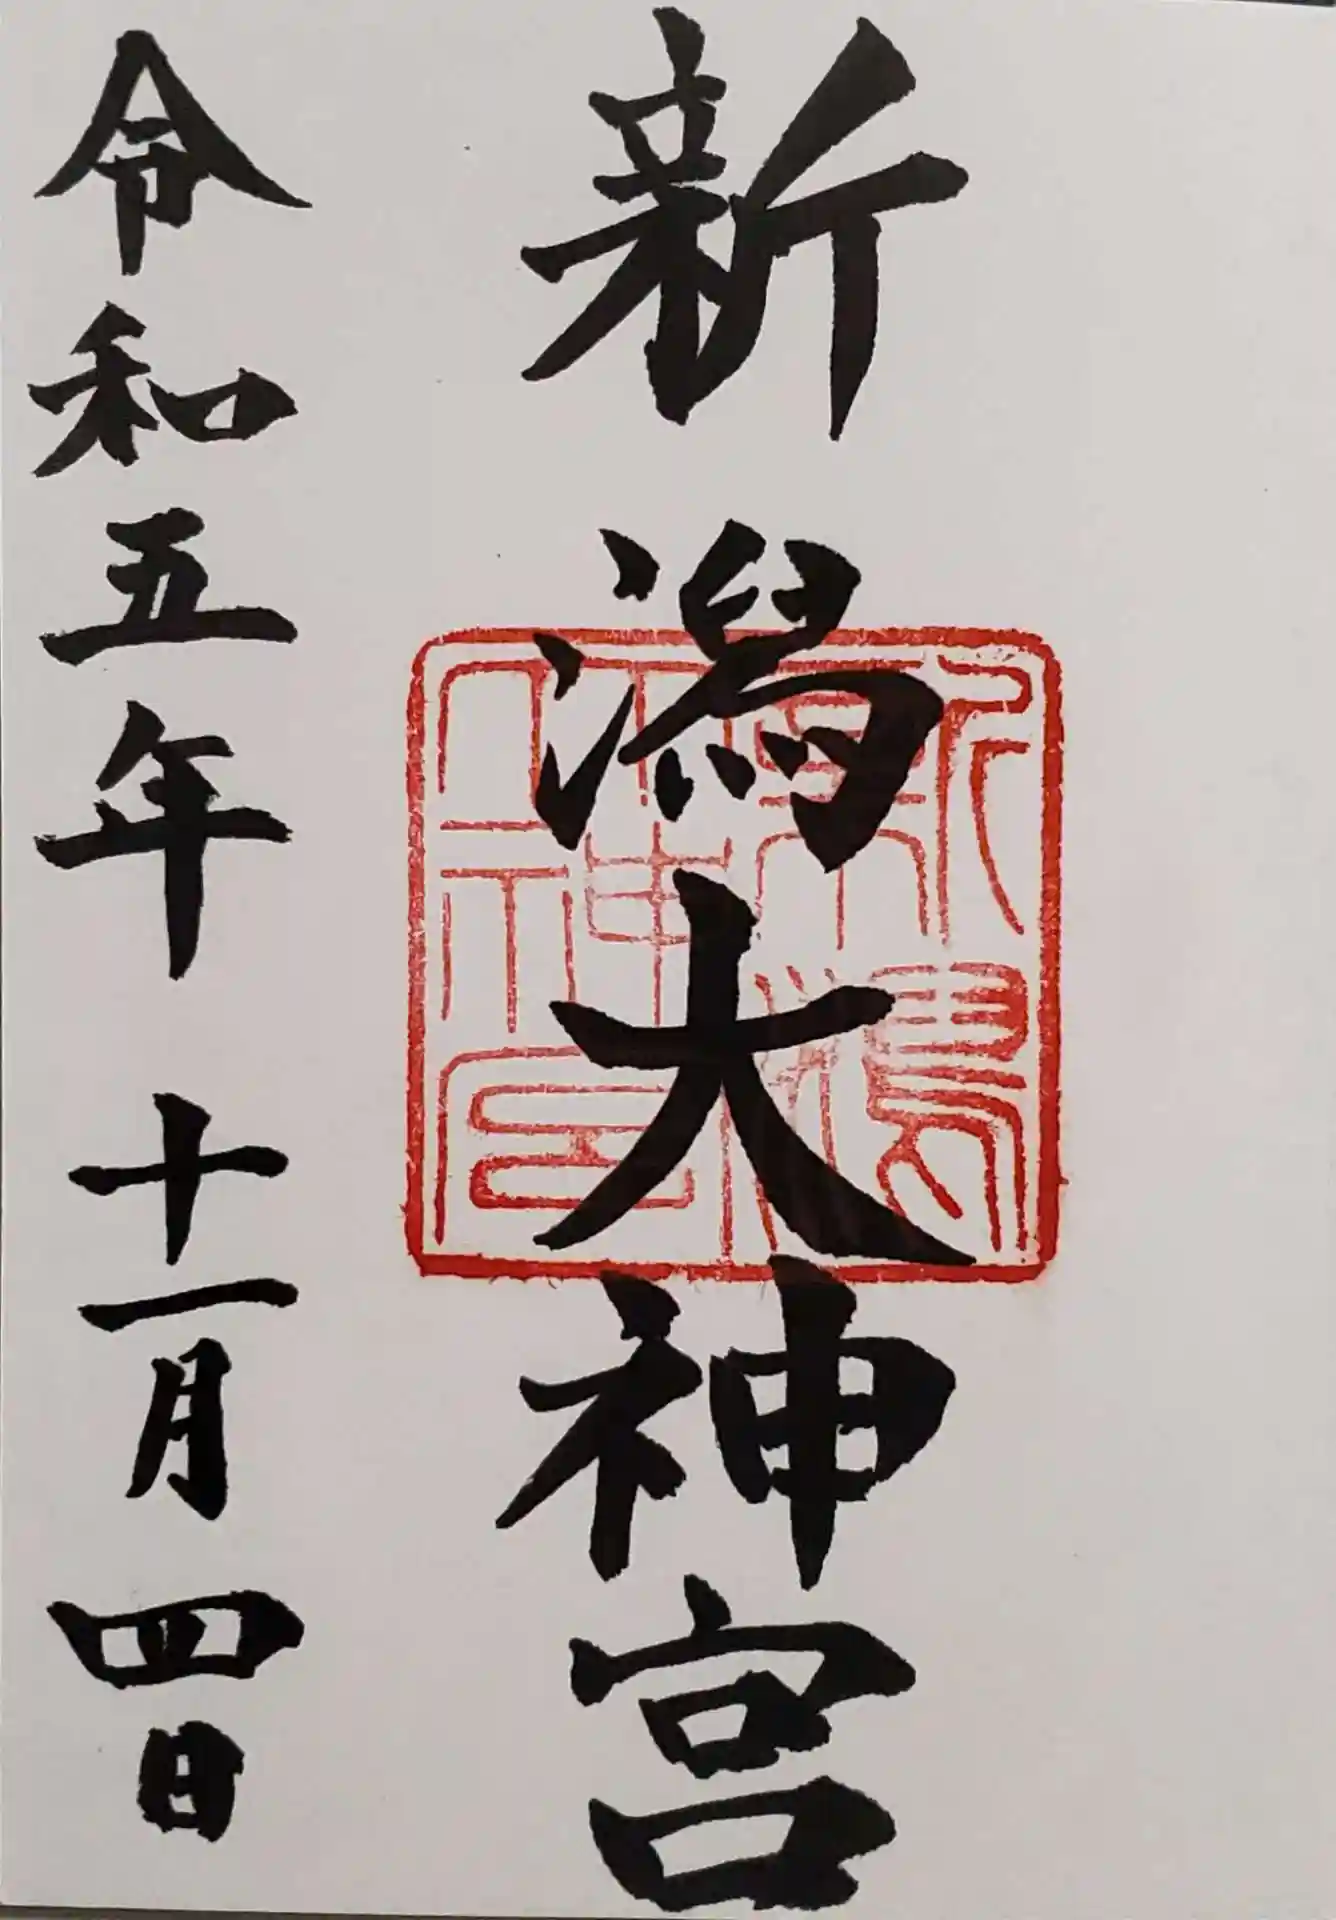 新潟大神宮
令和五年 十一月四日
新潟大神宮